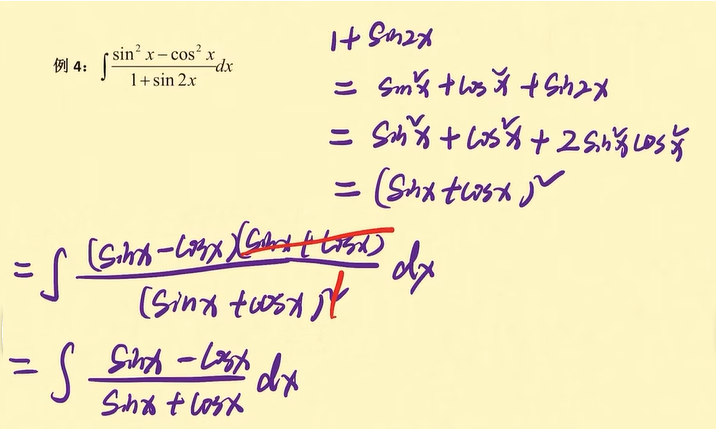 例 4: ∫ (sin² x − cos² x)/(1 + sin 2x) dx
1 + Sin2x
= Sin²x + cos²x + Sin2x
= Sin²x + cos²x + 2 Sin²x cos²x
= (Sinx + cosx)²
= ∫ (Sinx − cosx)(Sinx + cosx)/(Sinx + cosx)² dx
= ∫ (Sinx − cosx)/(Sinx + cosx) dx